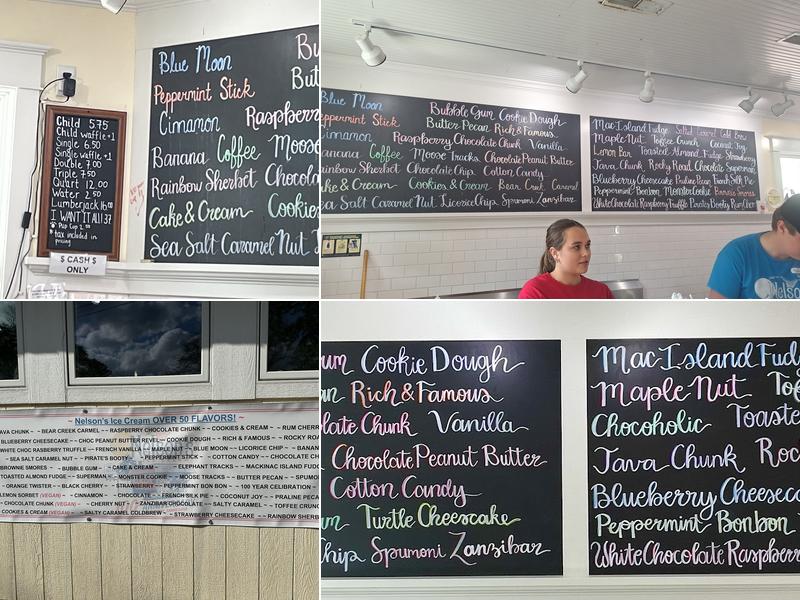 Child 5.75
Child waffle +1
Single 6.50
Single waffle +1
Double 7.00
Triple 7.50
Quart 12.00
Water 2.50
Lumberjack 16.00
I WANT IT ALL! 37
Pup Cup 2.00
* tax included in
pricing
$ CASH $
ONLY
Blue Moon
Peppermint Stick
Cinnamon Raspberr
Banana Coffee Moose
Rainbow Sherbet Chocola
Cake & Cream Cookies
Sea Salt Caramel Nut
Blue Moon Bubble Gum Cookie Dough
eppermint Stick Butter Pecan Rich & Famous
innamon Raspberry Chocolate Chunk Vanilla
anana Coffee Moose Tracks Chocolate Peanut Butter
ainbow Sherbet Chocolate Chip Cotton Candy
ake & Cream Cookies & Cream Bear Creek Caramel
ea Salt Caramel Nut Licorice Chip Spumoni Zanzibar
Mac Island Fudge Salted Caramel Cold Brew
Maple Nut Toffee Crunch Coconut Joy
Lemon Bar Toasted Almond Fudge Strawberry
Java Chunk Rocky Road Chocolate Superman
Blueberry Cheesecake Praline Pecan French Silk Pie
Peppermint Bonbon Monster Cookie Brownie Smores
White Chocolate Raspberry Truffle Pirates Booty Rum Cherry
Nelso
~ Nelson's Ice Cream OVER 50 FLAVORS! ~
AVA CHUNK~ ~ BEAR CREEK CARMEL ~ RASPBERRY CHOCOLATE CHUNK ~ COOKIES & CREAM ~ ~ RUM CHERR
BLUEBERRY CHEESECAKE~ ~ CHOC PEANUT BUTTER REVEL~ ~ COOKIE DOUGH ~ ~ RICH & FAMOUS ~ ~ ROCKY ROA
WHITE CHOC RASBERRY TRUFFLE ~ FRENCH VANILLA ~ MAPLE NUT ~ ~ BLUE MOON ~ ~ LICORICE CHIP ~ ~ BANAN
~ SEA SALT CARAMEL NUT ~ ~ PIRATE'S BOOTY ~ ~ PEPPERMINT STICK ~ ~ COTTON CANDY ~ ~ CHOCOLATE CH
BROWNIE SMORES ~ ~ BUBBLE GUM ~ ~ CAKE & CREAM ~ ~ ELEPHANT TRACKS ~ ~ MACKINAC ISLAND FUDG
TOASTED ALMOND FUDGE ~ ~ SUPERMAN ~ ~ MONSTER COOKIE ~ ~ MOOSE TRACKS ~ ~ BUTTER PECAN ~ ~ SPUMO
~ ORANGE TWISTER ~ ~ BLACK CHERRY ~ ~ STRAWBERRY ~ ~ PEPPERMINT BON BON ~ ~ 100 YEAR CELEBRATION ~
LEMON SORBET (VEGAN) ~ ~ CINNAMON ~ ~ CHOCOLATE ~ ~ FRENCH SILK PIE ~ ~ COCONUT JOY ~ ~ PRALINE PECA
CHOCOLATE CHUNK (VEGAN) ~ ~ CHERRY NUT ~ ~ ZANZIBAR CHOCOLATE ~ ~ SALTY CARAMEL ~ ~ TOFFEE CRUNC
COOKIES & CREAM (VEGAN) ~ ~ SALTY CARAMEL COLDBREW ~ ~ STRAWBERRY CHEESECAKE ~ ~ RAINBOW SHERB
um Cookie Dough
an Rich & Famous
late Chunk Vanilla
Chocolate Peanut Butter
Cotton Candy
m Turtle Cheesecake
Chip Spumoni Zanzibar
Mac Island Fud
Maple Nut Tof
Chocoholic Toaste
Java Chunk Roc
Blueberry Cheeseca
Peppermint Bonbon
White Chocolate Raspberr